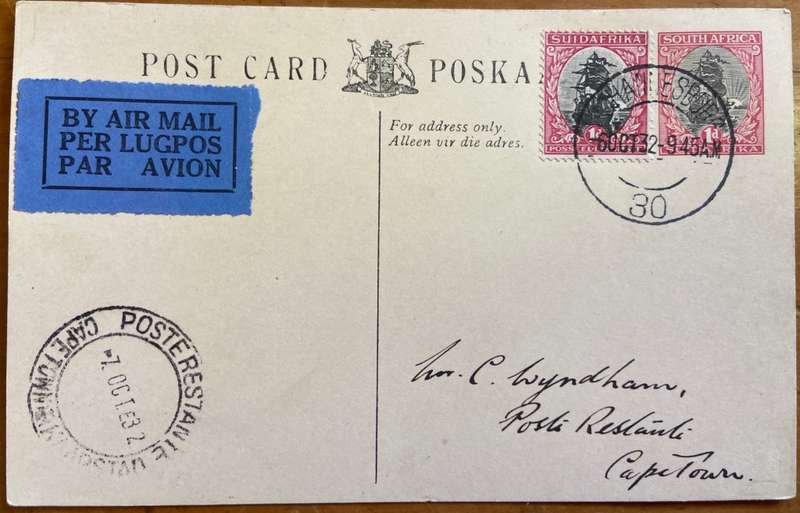 POST CARD POSKA
BY AIR MAIL
PER LUGPOS
PAR AVION
For address only.
Alleen vir die adres.
SUIDAFRIKA
1d
SOUTH AFRICA
1d
-6OCT32-945AM
30
POSTE RESTANTE
CAPETOWN
-7.OCT.E32
C. Wyndham,
Poste Restante
CapeTown.